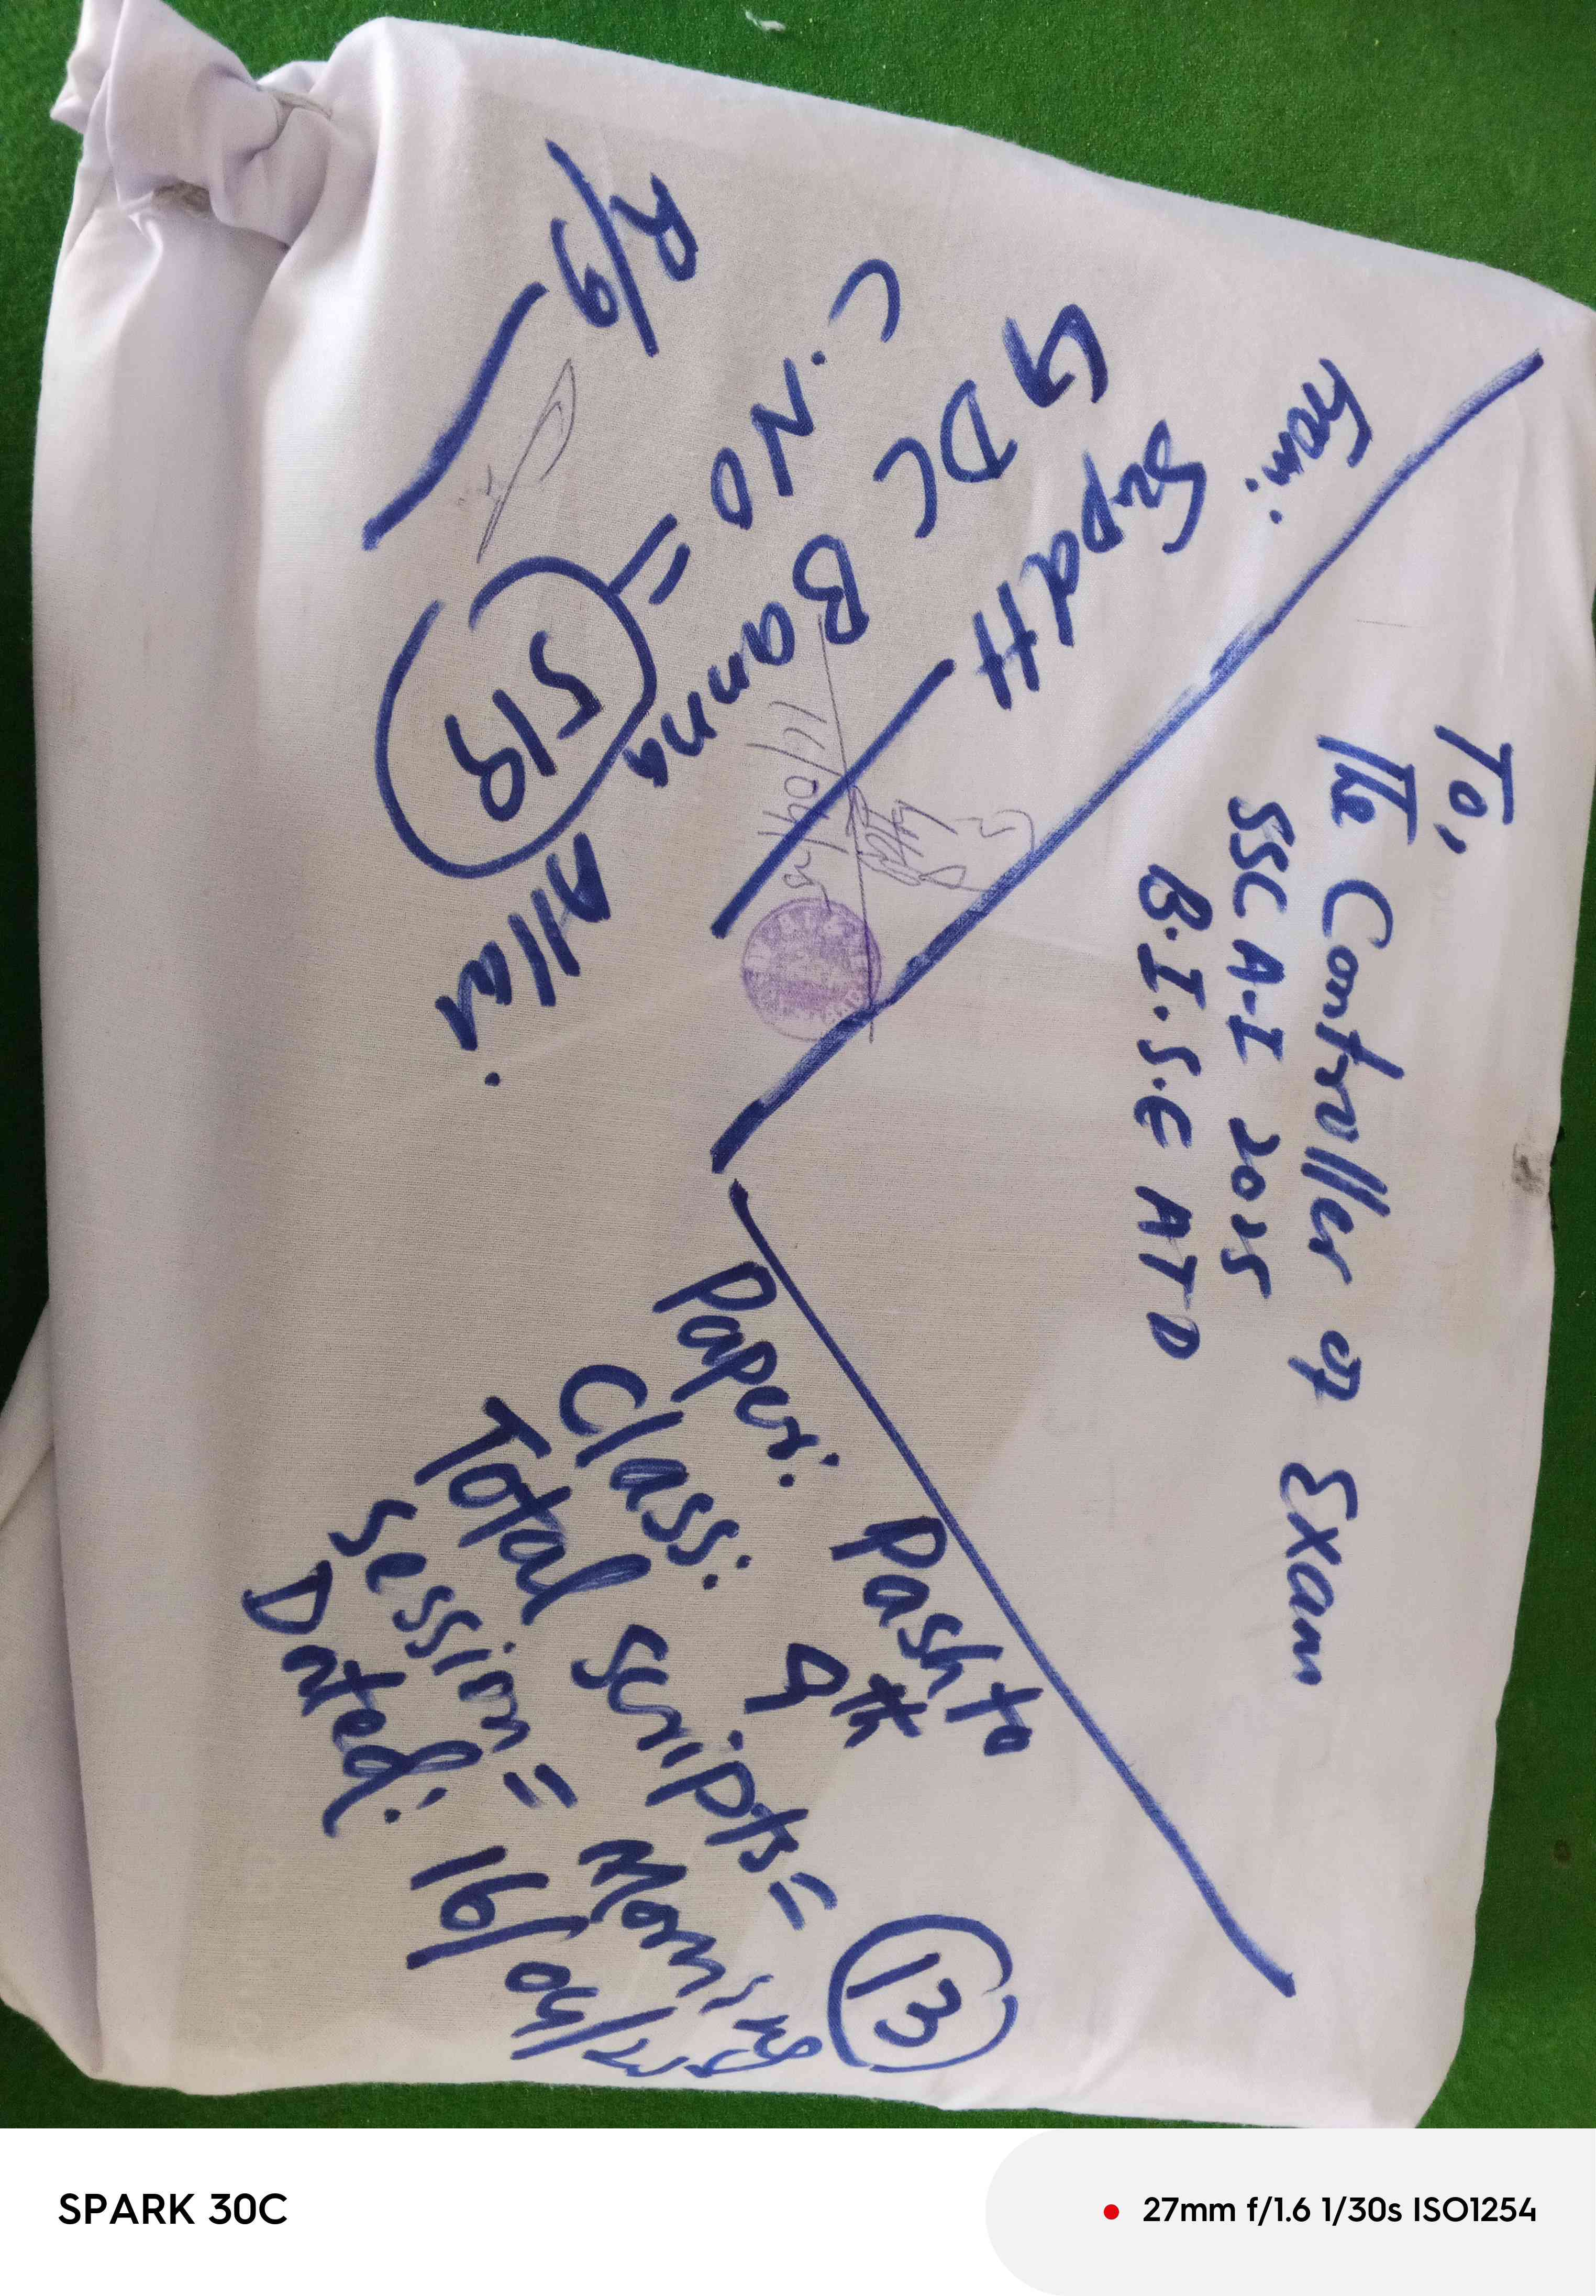 To,
The Controller of Exam
SSC A-I 2025
B.I.S.E ATD
From:
Supdtt
GDC Banna Allai.
C.NO = 519
R/9
16/04/25
Paper: Pashto
Class: 9th
Total scripts= 13
Session = Morning
Dated: 16/04/25
SPARK 30C
27mm f/1.6 1/30s ISO1254